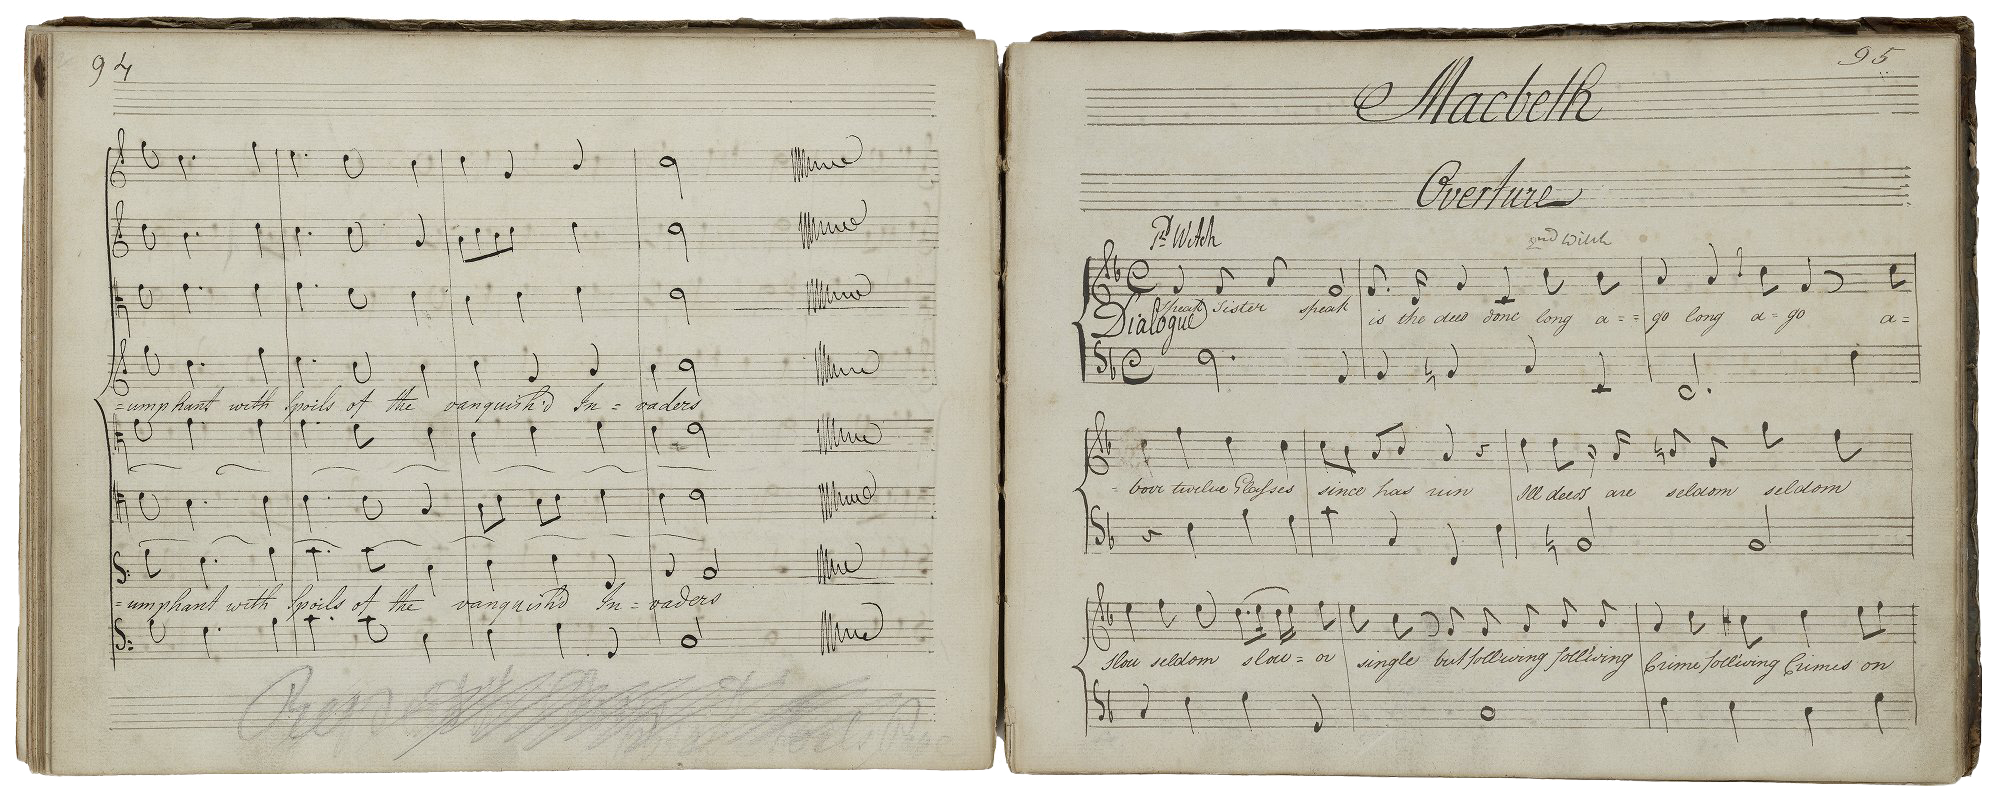 94
=umphant with Spoils of the vanquish'd In = vaders
=umphant with Spoils of the vanquish'd In = vaders
95
Macbeth
Overture
1st Witch
2nd Witch
Dialogue
Speak Sister speak is the deed done long a = = go long a = go a =
= bove twelve Glasses since has run Ill deeds are seldom seldom
slow seldom slow = or single but foll'wing foll'wing Crime foll'wing Crimes on